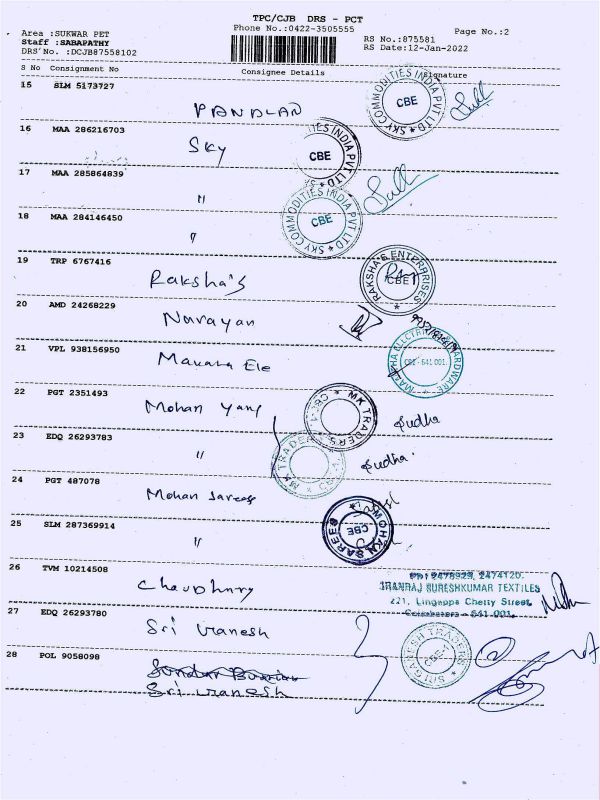 TPC/CJB DRS - PCT
Phone No.:0422-3505555
Page No.:2
Area :SUKWAR PET
Staff :SABAPATHY
DRS No. :DCJB87558102
RS No.:875581
RS Date:12-Jan-2022
S No Consignment No Consignee Details Signature
15 SLM 5173727
PANDIAN
SKY COMMODITIES INDIA PVT LTD CBE
16 MAA 286216703
Sky
INDIA PVT LTD CBE
17 MAA 285864839
"
SKY COMMODITIES INDIA PVT LTD CBE
18 MAA 284146450
"
19 TRP 6767416
Raksha's
RAKSHA'S ENTERPRISES CBE
20 AMD 24268229
Narayan
21 VPL 938156950
Ele
HARDWARE CBE - 641 001.
22 PGT 2351493
Mohan Yang
MK TRADERS CBE-1
Sudha
23 EDQ 26293783
"
MK TRADERS
Sudha.
24 PGT 487078
Mohan Sarees
MOHAN SAREES CBE
25 SLM 287369914
"
26 TVM 10214508
Chaudhary
Ph: 2478929, 2474120.
SURESHKUMAR TEXTILES
221, Lingappa Chetty Street,
Coimbatore - 641 001.
27 EDQ 26293780
Sri Ganesh
SRI GANESH TRADERS CBE-1
28 POL 9058098
Sri Ganesh